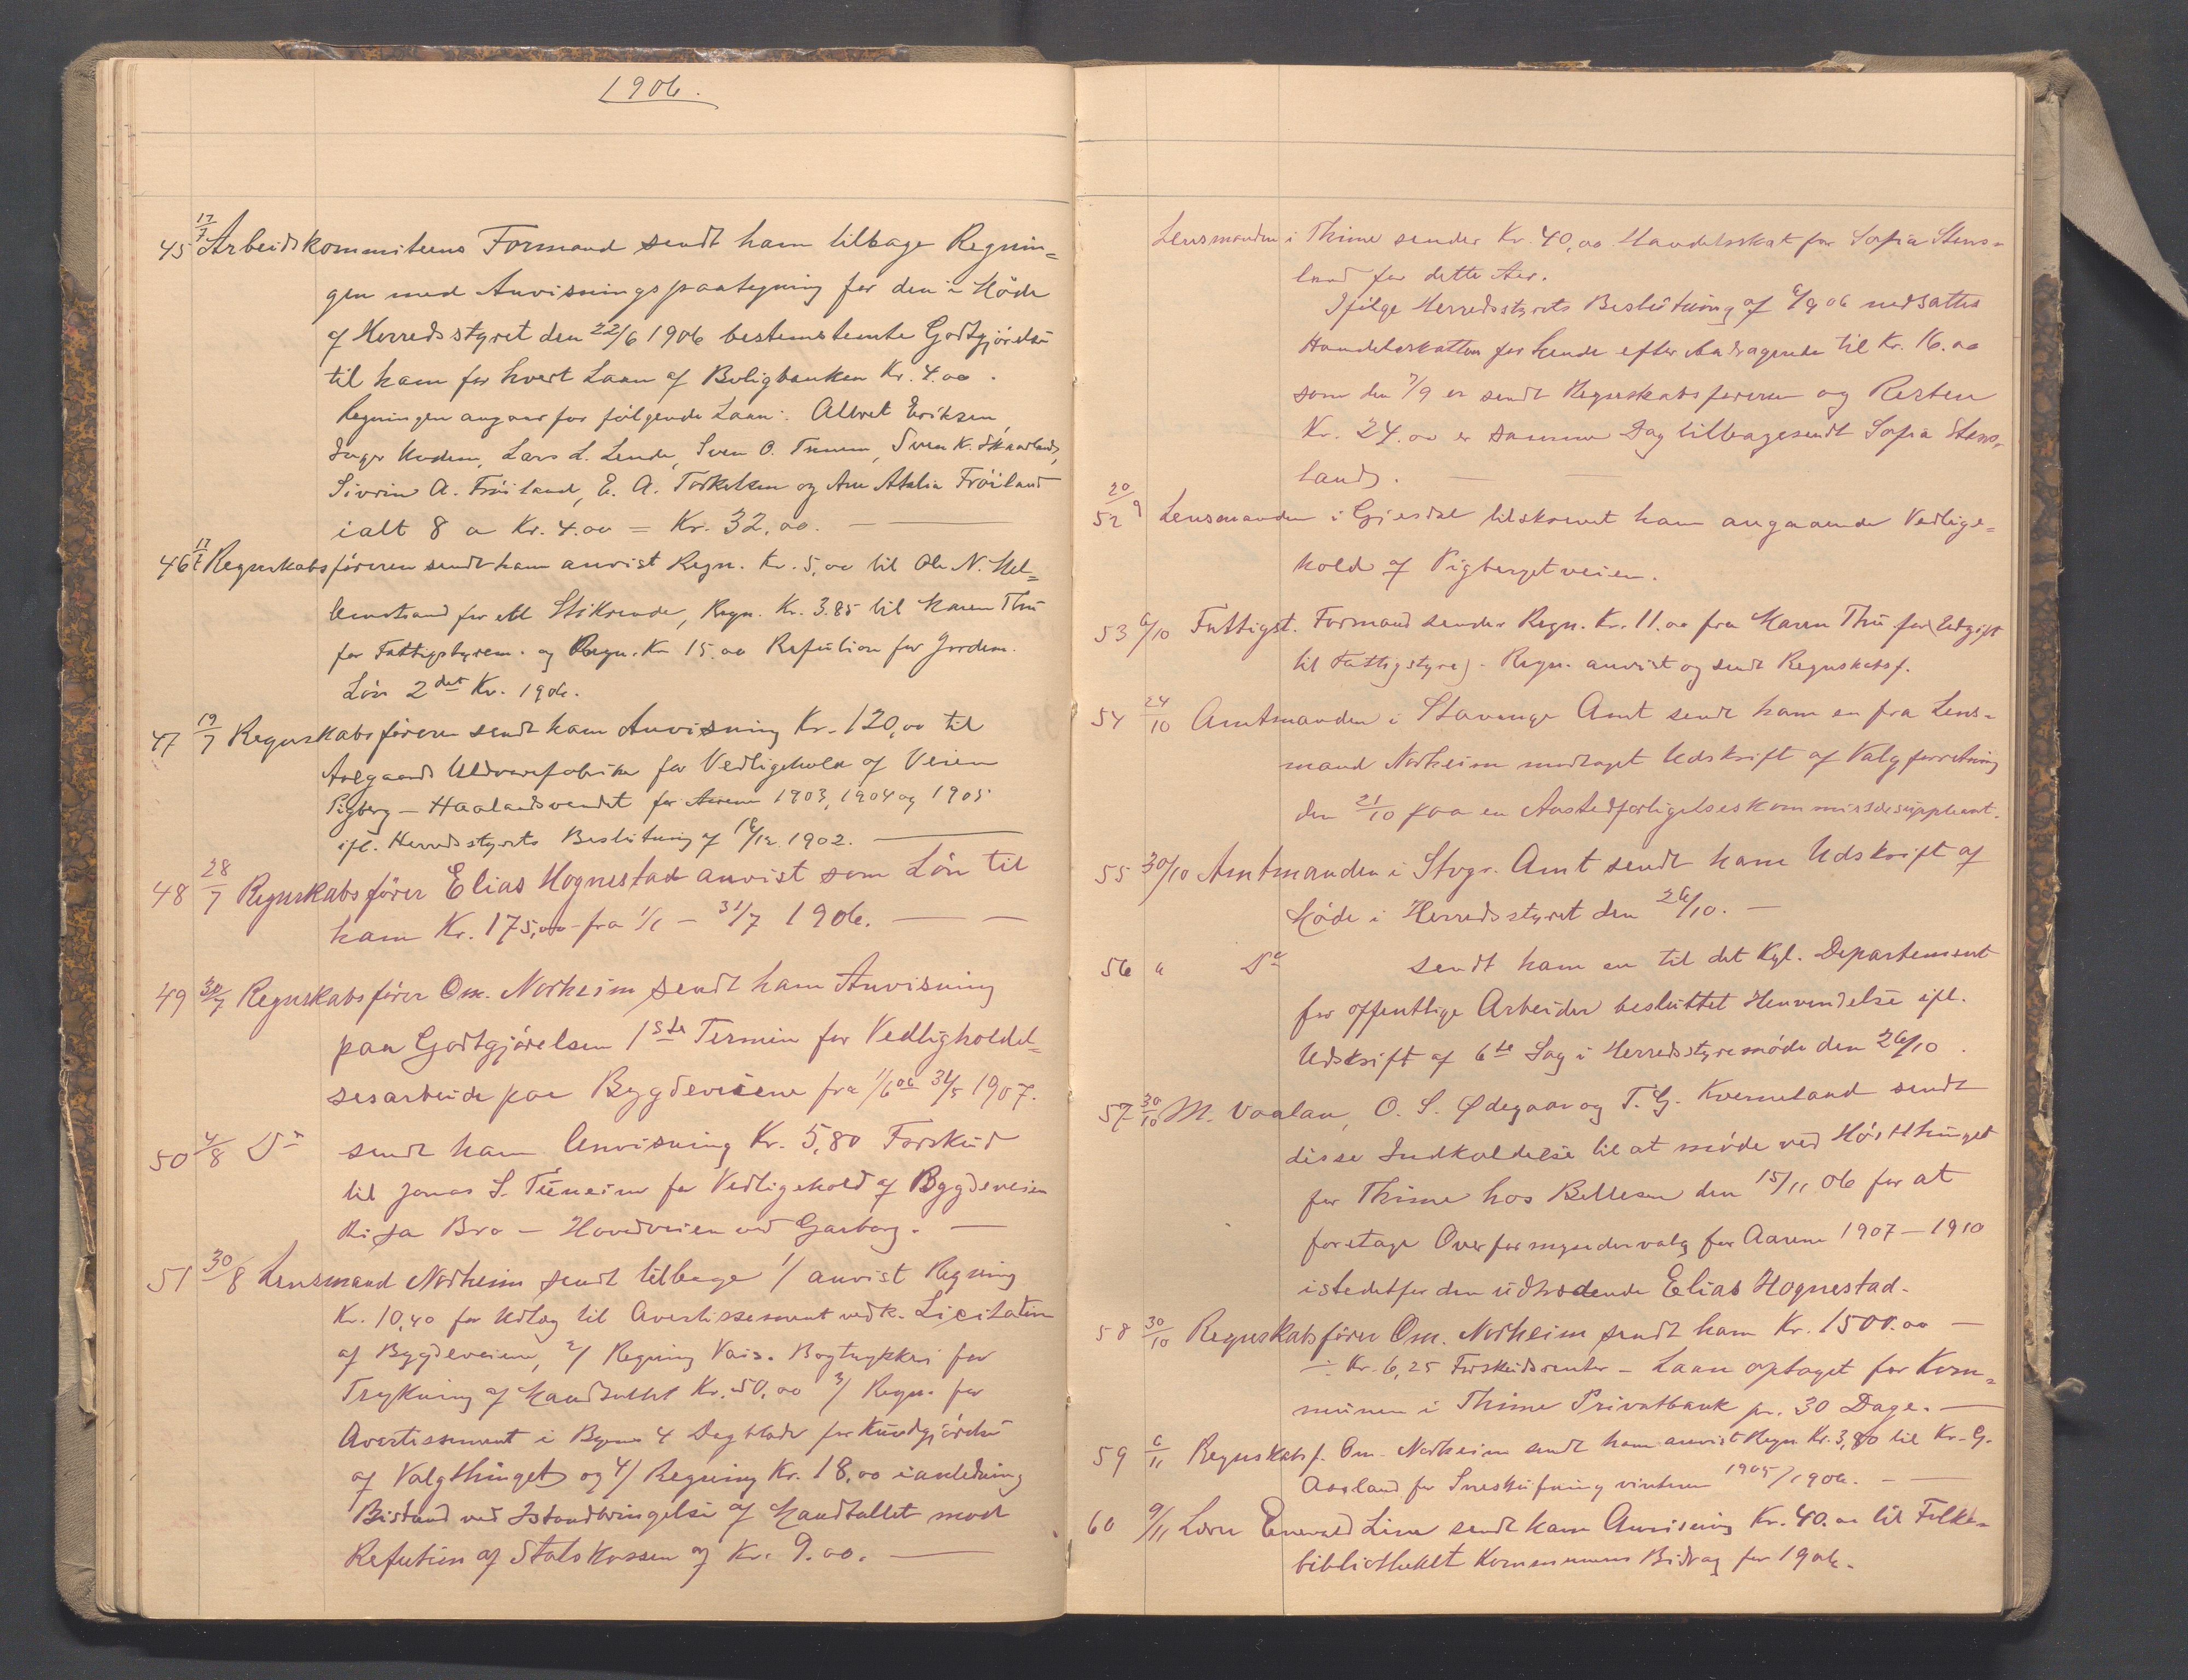 1906.
45 17/7 Arbeidskommiteens Formand sendt ham tilbage Regnin=
gen med Anvisningspaategning for den i Möde
af Herredsstyret den 22/6 1906 bestemstemte Godtgjörelse
til ham for hvert Laan af Boligbanken Kr. 4.00.
Regningen angaar for følgende Laan: Albret Eriksen,
Inger Undem, Lars L. Lende, Sven O. Tunem, Sven K. Skaarland,
Sivrin A. Fröiland, E. A. Torkelsen og Ane Atalia Fröiland
ialt 8 a Kr. 4.00 = Kr. 32,00. —
46 17/7 Regnskabsföreren sendt ham anvist Regn. Kr. 5,00 til Ole N. Hel=
for et Stikrende, Regn. Kr. 3.85 til Maren Thu
for Fattigstyrem. og Regn. Kr 15.00 Refution for Jordem.
Lön 2det Kv. 1906.
47 19/7 Regnskabsföreren sendt ham Anvisning Kr. 120,00 til
Aalgaards Uldvarefabriker for Vedligehold af Veien
Pigberg — Haalandsvendet for Aarene 1903, 1904 og 1905
ifl. Herredsstyrets Beslutning af 18/12 1902. —
48 28/7 Regnskabsförer Elias Hognestad anvist som Lön til
ham Kr. 175,00 fra 1/1 — 31/7 1906. — —
49 30/7 Regnskabsförer Om. Norheim sendt ham Anvisning
paa Godtgjörelsen 1ste Termin for Vedligholdel=
sesarbeide paa Bygdeveiene fra 1/6 06 31/5 1907.
50 4/8 Do sendt ham Anvisning Kr. 5,80 Forskud
til Jonas S. Tuneim for Vedligehold af Bygdeveien
Risa Bro — Hovedveien ved Garborg. —
51 30/8 Lensmand Norheim sendt tilbage 1/ anvist Regning
Kr. 10,40 for Udlæg til Avertissement vedk. Licitation
af Bygdeveiene, 2/ Regning Vais. Bogtrykkeri for
Trykning af Mandtallet Kr. 50,00 3/ Regn. for
Avertissement i Byens 4 Dagblade for Kundgjörelse
af Valgthinget og 4/ Regning Kr. 18,00 i anledning
Bistand ved Istandbringelse af Mandtallet mod
Refution af Statskassen af Kr. 9.00. —
Lensmanden i Thime sender Kr. 40,00 Handelsskat for Sofia Stens=
land for dette Aar.
Ifølge Herredsstyrets Beslutning af 6/9 06 nedsattes
Handelsskatten for hende efter Andragende til Kr. 16.00
som den 7/9 er sendt Regnskabsføreren og Resten
Kr. 24.00 er samme Dag tilbagesendt Sofia Stens=
land. —
52 20/9 Lensmanden i Gjesdal tilskrevet ham angaaende Vedlige=
hold af Pigbergetveien.
53 6/10 Fattigst. Formand sender Regn. Kr. 11.00 fra Maren Thu for Udgift
til Fattigstyre). Regn. anvist og sendt Regnskabsf.
54 24/10 Amtmanden i Stavanger Amt sendt ham en fra Lens=
mand Norheim modtaget Udskrift af Valgforretning
den 21/10 paa en Aastedforligelseskommissærsuppleant.
55 30/10 Amtmanden i Stvgr. Amt sendt ham Udskrift af
Möde i Herredsstyret den 26/10. —
56 " Do sendt ham en til det Kgl. Departement
for offentlige Arbeider besluttet Henvendelse ifl.
Udskrift af 6te Sag i Herredsstyremöde den 26/10.
57 30/10 M. Vaalan, O. S. Ødegaar og T. G. Kverneland sendt
disse Indkaldelse til at møde ved Høstthinget
for Thime hos Bellesen den 15/11 06 for at
foretage Overformyndervalg for Aarene 1907 — 1910
istedetfor den udtrædende Elias Hognestad.
58 30/10 Regnskabsfører Om. Norheim sendt ham Kr. 1500.00 —
÷ Kr. 6,25 Forskudsrenter — Laan optaget for Kom=
munen i Thime Privatbank pr. 30 Dage. —
59 6/11 Regnskabsf. Om. Norheim sendt ham anvist Regn Kr. 3,80 til Kr. G.
Aasland for Sneskufning vinteren 1905/1906. — —
60 9/11 Lærer Enevald Line sendt ham Anvisning Kr. 40.00 til Folke=
bibliotheket Kommunens Bidrag for 1906.